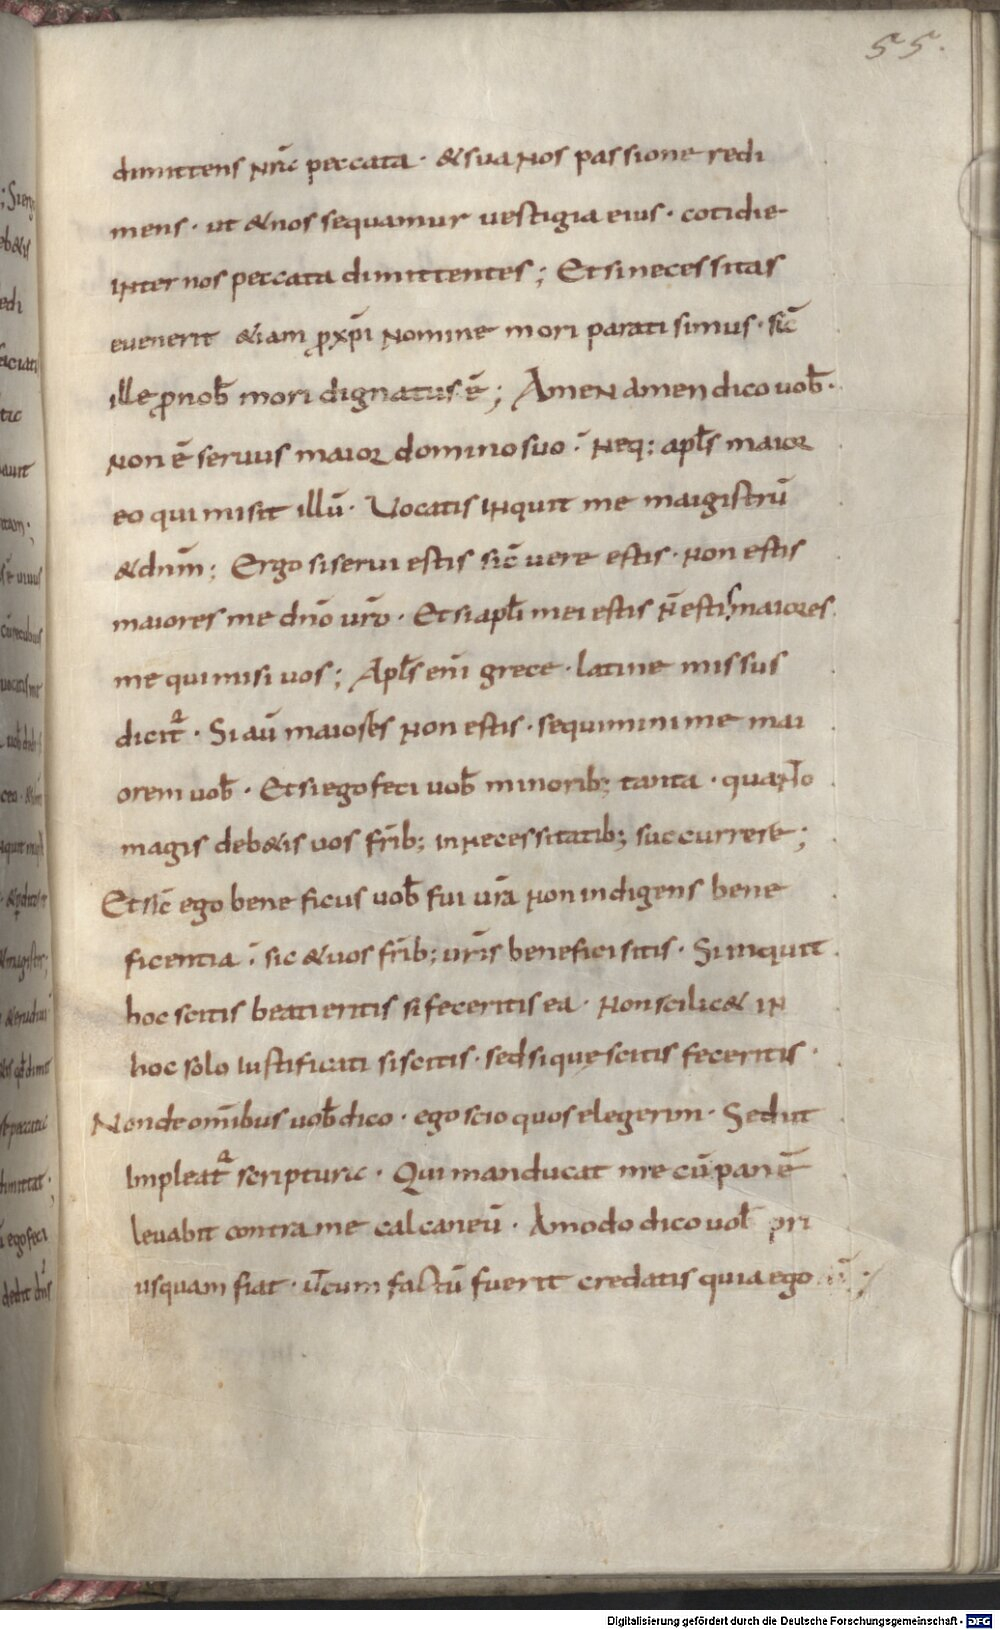 55.
dimittens nr̄a peccata · & sua nos passione redi
mens · ut & nos sequamur vestigia eius · cotidie
inter nos peccata dimittentes ; Et si necessitas
evenerit &iam ꝓ xp̄i nomine mori parati simus · sic̄
ille ꝓ nob̄ mori dignatus ē ; Amen amen dico vob̄ ·
Non ē servus maior domino suo · Neq; apl̄s maior
eo qui misit illū · Vocatis inquit me maigistrū
& dnm̄ ; Ergo si servi estis sic̄ vere estis · non estis
maiores me dn̄o vr̄o · Et si apl̄i mei estis n̄ estis maiores
me qui misi vos ; Apl̄s eni̅ grece · latine missus
dicit᷑ · Si aū maiores non estis · sequimini me mai
orem vob̄ · Et si ego feci vob̄ minorib; tanta · quanto
magis deb&is vos fr̄ib; in necessitatib; succurrere ;
Et sic̄ ego beneficus vob̄ fui vr̄a non indigens bene
ficentia · sic & vos fr̄ib; vr̄is benefici sitis · Si inquit
hoc scitis beati eritis si feceritis ea · Non scilic& in
hoc solo iustificati si scitis · sed si quę scitis feceritis ·
Non de om̄ibus vob̄ dico · ego scio quos elegerim · Sed ut
impleat᷑ scriptura · Qui manducat me cū panē
levabit contra me calcaneū · Amodo dico vob̄ pri
usquam fiat · ut cum factū fuerit credatis quia ego
Digitalisierung gefördert durch die Deutsche Forschungsgemeinschaft - DFG